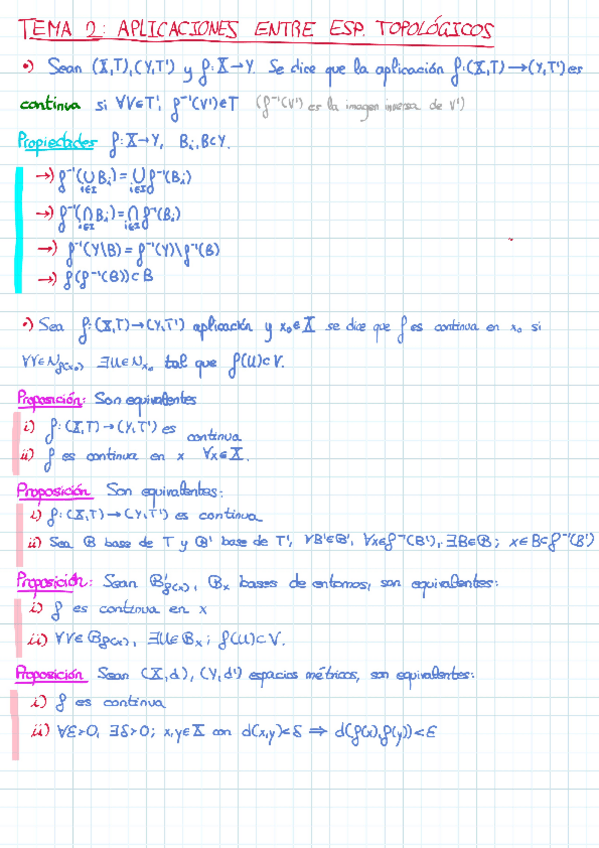 TEMA 2: APLICACIONES ENTRE ESP. TOPOLÓGICOS
•) Sean (X,T), (Y,T') y f: X→Y. Se dice que la aplicación f: (X,T)→(Y,T') es
continua si ∀V∈T', f⁻¹(V')∈T (f⁻¹(V') es la imagen inversa de V')
Propiedades f: X→Y, Bᵢ, B⊂Y.
→) f⁻¹(⋃_{i∈I} Bᵢ) = ⋃_{i∈I} f⁻¹(Bᵢ)
→) f⁻¹(⋂_{i∈I} Bᵢ) = ⋂_{i∈I} f⁻¹(Bᵢ)
→) f⁻¹(Y\B) = f⁻¹(Y)\f⁻¹(B)
→) f(f⁻¹(B))⊂B
•) Sea f: (X,T)→(Y,T') aplicación y x₀∈X se dice que f es continua en x₀ si
∀V∈N_{f(x₀)} ∃U∈N_{x₀} tal que f(U)⊂V.
Proposición: Son equivalentes
i) f: (X,T)→(Y,T') es continua
ii) f es continua en x ∀x∈X.
Proposición Son equivalentes:
i) f: (X,T)→(Y,T') es continua
ii) Sea B base de T y B' base de T', ∀B'∈B', ∀x∈f⁻¹(B'), ∃B∈B; x∈B⊂f⁻¹(B')
Proposición: Sean B'_{f(x)}, B_x bases de entornos, son equivalentes:
i) f es continua en x
ii) ∀V∈B_{f(x)}, ∃U∈B_x; f(U)⊂V.
Proposición Sean (X,d), (Y,d') espacios métricos, son equivalentes:
i) f es continua
ii) ∀ε>0, ∃δ>0; x,y∈X con d(x,y)<δ ⇒ d(f(x),f(y))<ε